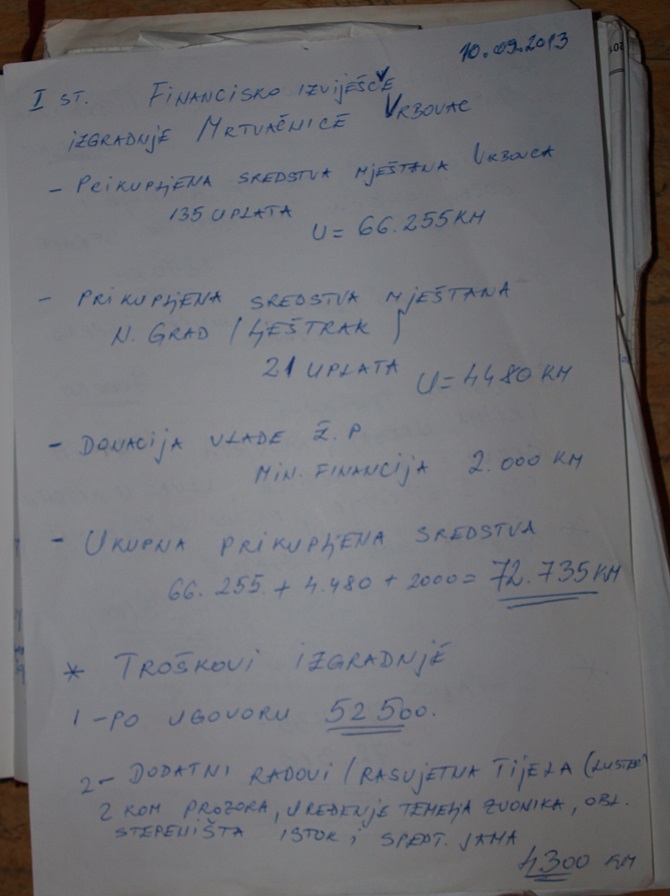 10.09.2013
I ST. FINANCISKO IZVIJEŠČE
IZGRADNJE MRTVAČNICE VRBOVAC
- PRIKUPLJENA SREDSTVA MJEŠTANA VRBOVCA
135 UPLATA U= 66.255 KM
- PRIKUPLJENA SREDSTVA MJEŠTANA
N. GRAD / LJEŠTRAK
21 UPLATA U= 4480 KM
- DONACIJA VLADE Ž.P.
MIN. FINANCIJA 2.000 KM
- UKUPNA PRIKUPLJENA SREDSTVA
66.255 + 4.480 + 2000 = 72.735 KM
* TROŠKOVI IZGRADNJE
1 - PO UGOVORU 52500.
2 - DODATNI RADOVI / RASVJETNA TIJELA (LUSTERI
2 KOM PROZORA, UREĐENJE TEMELJA ZVONIKA, OBL.
STEPENIŠTA ISTOK i SPEDT. JAMA
4300 KM